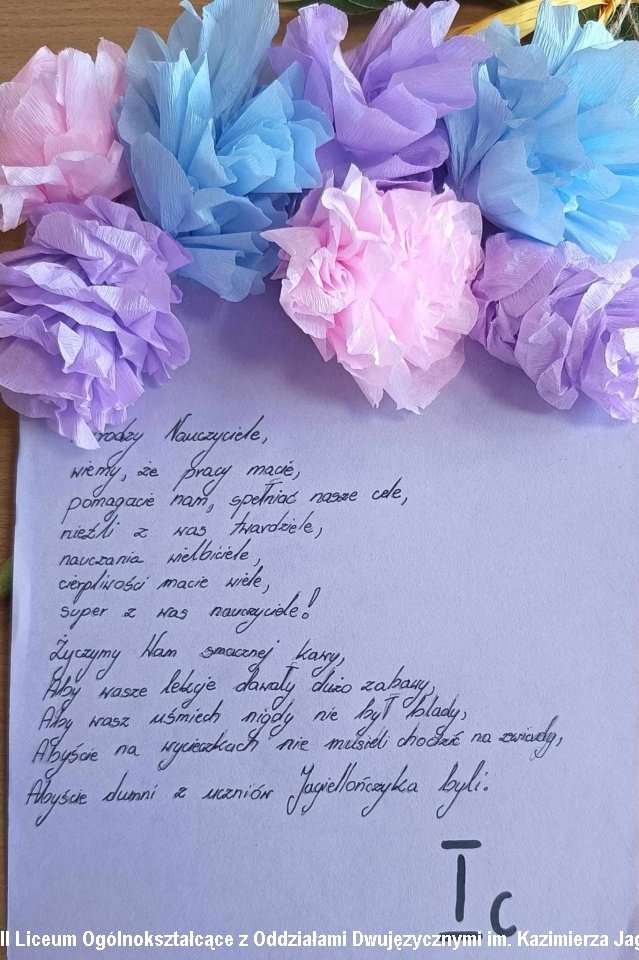 Nauczyciele,
wiemy, że pracy macie,
pomagacie nam, spełniać nasze cele,
nieźli z was twardziele,
nauczania wielbiciele,
cierpliwości macie wiele,
super z was nauczyciele!
Życzymy Wam smacznej kawy,
Aby wasze lekcje dawały dużo zabawy,
Aby wasz uśmiech nigdy nie był blady,
Abyście na wycieczkach nie musieli chodzić na zwiady,
Abyście dumni z uczniów Jagiellończyka byli.
I c
II Liceum Ogólnokształcące z Oddziałami Dwujęzycznymi im. Kazimierza Jag